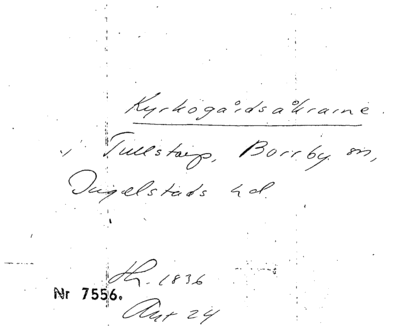 Kyrkogårdsåkrarne.
Tullstorp, Borrby sn,
Ingelstads hd.
1836
Nr 7556.
Akt 24